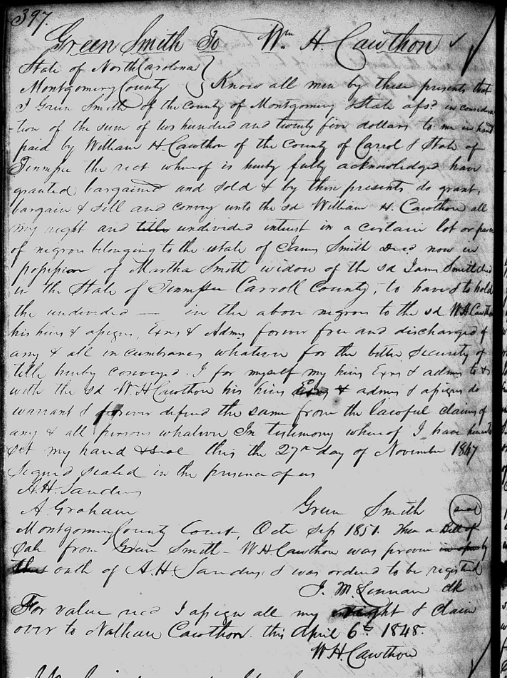 397.
Green Smith To Wm H. Cawthon
State of North Carolina
Montgomery County } Know all men by these presents that
I Green Smith of the County of Montgomery State afsd in considera
-tion of the sum of two hundred and twenty five dollars to me in hand
paid by William H. Cawthon of the County of Carrol & State of
Tennessee the rect whereof is hereby fully acknowledged have
granted bargained and sold & by these presents do grant
bargain & sell and convey unto the sd William H. Cawthon all
my right and title undivided interest in a certain lot or
of negroes belonging to the estate of Smith Decd now in
possession of Martha Smith widow of the sd Smith decd
in the State of Tennessee Carroll County, to have & to hold
the undivided — in the above negroes to the sd W H Cawthon
his heirs & assigns, Exrs & Admrs forever free and discharged of
any & all incumbrances whatever for the better security of
title hereby conveyed I for myself my heirs Exrs & admrs to &
with the sd W H Cawthon his heirs Exrs & admrs & assigns do
warrant & forever defend the same from the lawful claims of
any & all persons whatever In testimony whereof I have hereunto
set my hand & seal this the 27th day of November 1847
Signed sealed in the presence of us
A. H. Sanders
A. Graham
Green Smith (seal)
Montgomery County Court, Octr 1851. Then a Bill of
Sale from Green Smith - W H Cawthon was proven in open
oath of A. H. Sanders & was ordered to be registd
J. M. clk
For value recd I assign all my right & claim
over to Nathan Cawthon. this April 6th 1848.
W H Cawthon